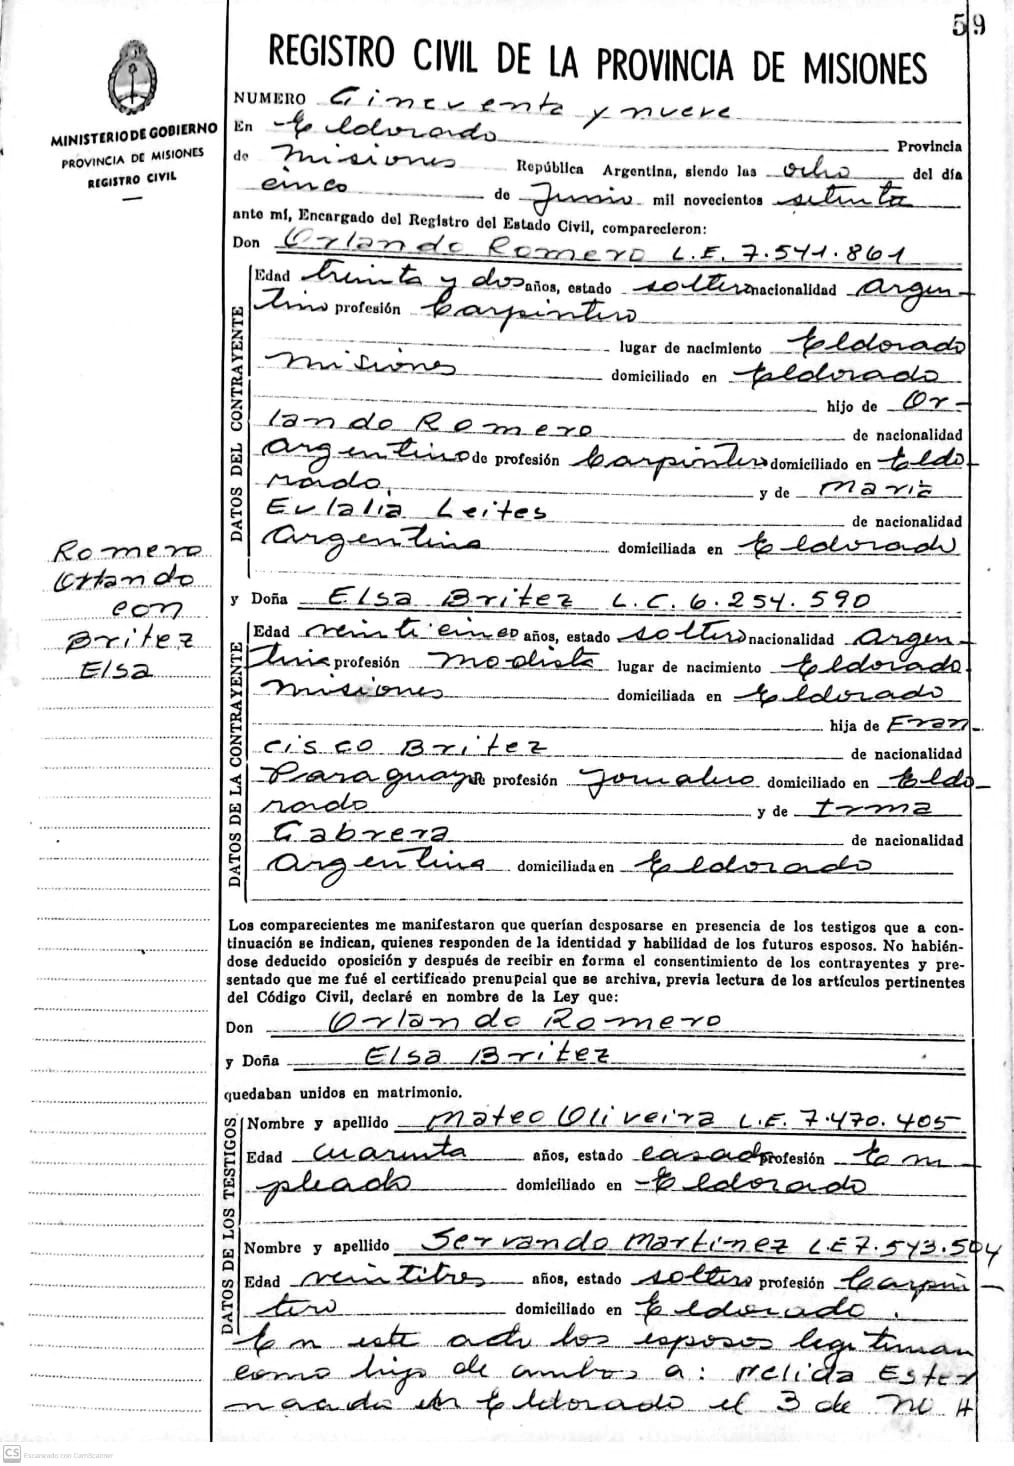 59
REGISTRO CIVIL DE LA PROVINCIA DE MISIONES
MINISTERIO DE GOBIERNO
PROVINCIA DE MISIONES
REGISTRO CIVIL
NUMERO Cincuenta y nueve
En Eldorado Provincia
de Misiones República Argentina, siendo las ocho del día
cinco de Junio mil novecientos setenta
ante mí, Encargado del Registro del Estado Civil, comparecieron:
Don Orlando Romero L.E. 7.541.861
DATOS DEL CONTRAYENTE
Edad treinta y dos años, estado soltero nacionalidad argen-
tino profesión Carpintero
lugar de nacimiento Eldorado
Misiones domiciliado en Eldorado
hijo de Or-
lando Romero de nacionalidad
argentino de profesión Carpintero domiciliado en Eldo-
rado, y de Maria
Eulalia Leites de nacionalidad
Argentina domiciliada en Eldorado
Romero
Orlando
con
Britez
Elsa
y Doña Elsa Britez L.C. 6.254.590
DATOS DE LA CONTRAYENTE
Edad veinticinco años, estado soltero nacionalidad argen-
tina profesión modista lugar de nacimiento Eldorado
Misiones domiciliada en Eldorado
hija de Fran-
cisco Britez de nacionalidad
Paraguaya de profesión Jornalero domiciliado en Eldo-
rado y de Irma
Cabrera de nacionalidad
Argentina domiciliada en Eldorado
Los comparecientes me manifestaron que querían desposarse en presencia de los testigos que a con-
tinuación se indican, quienes responden de la identidad y habilidad de los futuros esposos. No habién-
dose deducido oposición y después de recibir en forma el consentimiento de los contrayentes y pre-
sentado que me fué el certificado prenupcial que se archiva, previa lectura de los artículos pertinentes
del Código Civil, declaré en nombre de la Ley que:
Don Orlando Romero
y Doña Elsa Britez
quedaban unidos en matrimonio.
DATOS DE LOS TESTIGOS
Nombre y apellido Mateo Oliveira L.E. 7.470.405
Edad cuarenta años, estado casado profesión Em-
pleado domiciliado en Eldorado
Nombre y apellido Servando Martinez L.E 7.543.504
Edad veintitres años, estado soltero profesión Carpin-
tero domiciliado en Eldorado.
En este acto los esposos legitiman
como hijo de ambos a: Nelida Ester
nacida en Eldorado el 3 de No
CS Escaneado con CamScanner